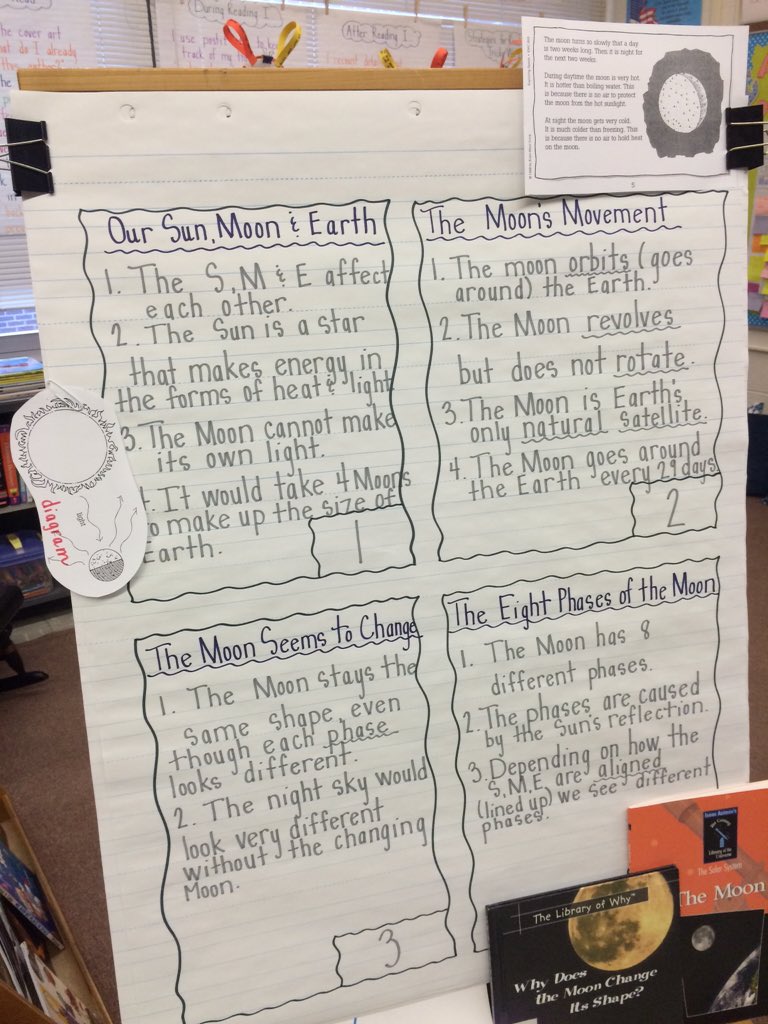 During Reading I
After Reading I
The moon turns so slowly that a day
is two weeks long. Then it is night for
the next two weeks.
During daytime the moon is very hot.
It is hotter than boiling water. This
is because there is no air to protect
the moon from the hot sunlight.
At night the moon gets very cold.
It is much colder than freezing. This
is because there is no air to hold heat
on the moon.
5
Our Sun, Moon & Earth
1. The S, M & E affect
each other.
2. The Sun is a star
that makes energy in
the forms of heat & light
3. The Moon cannot make
its own light.
. It would take 4 Moons
o make up the size of
Earth.
1
diagram
light
The Moon's Movement
1. The moon orbits (goes
around) the Earth.
2. The Moon revolves
but does not rotate.
3. The Moon is Earth's
only natural satellite.
4. The Moon goes around
the Earth every 29 days
2
The Moon Seems to Change
1. The Moon stays the
same shape, even
though each phase
looks different.
2. The night sky would
look very different
without the changing
Moon.
3
The Eight Phases of the Moon
1. The Moon has 8
different phases.
2. The phases are caused
by the Sun's reflection.
3. Depending on how the
S, M, E are aligned
(lined up) we see different
phases.
The Library of Why™
Why Does
the Moon Change
Its Shape?
Isaac Asimov's
The Solar System
The Moon